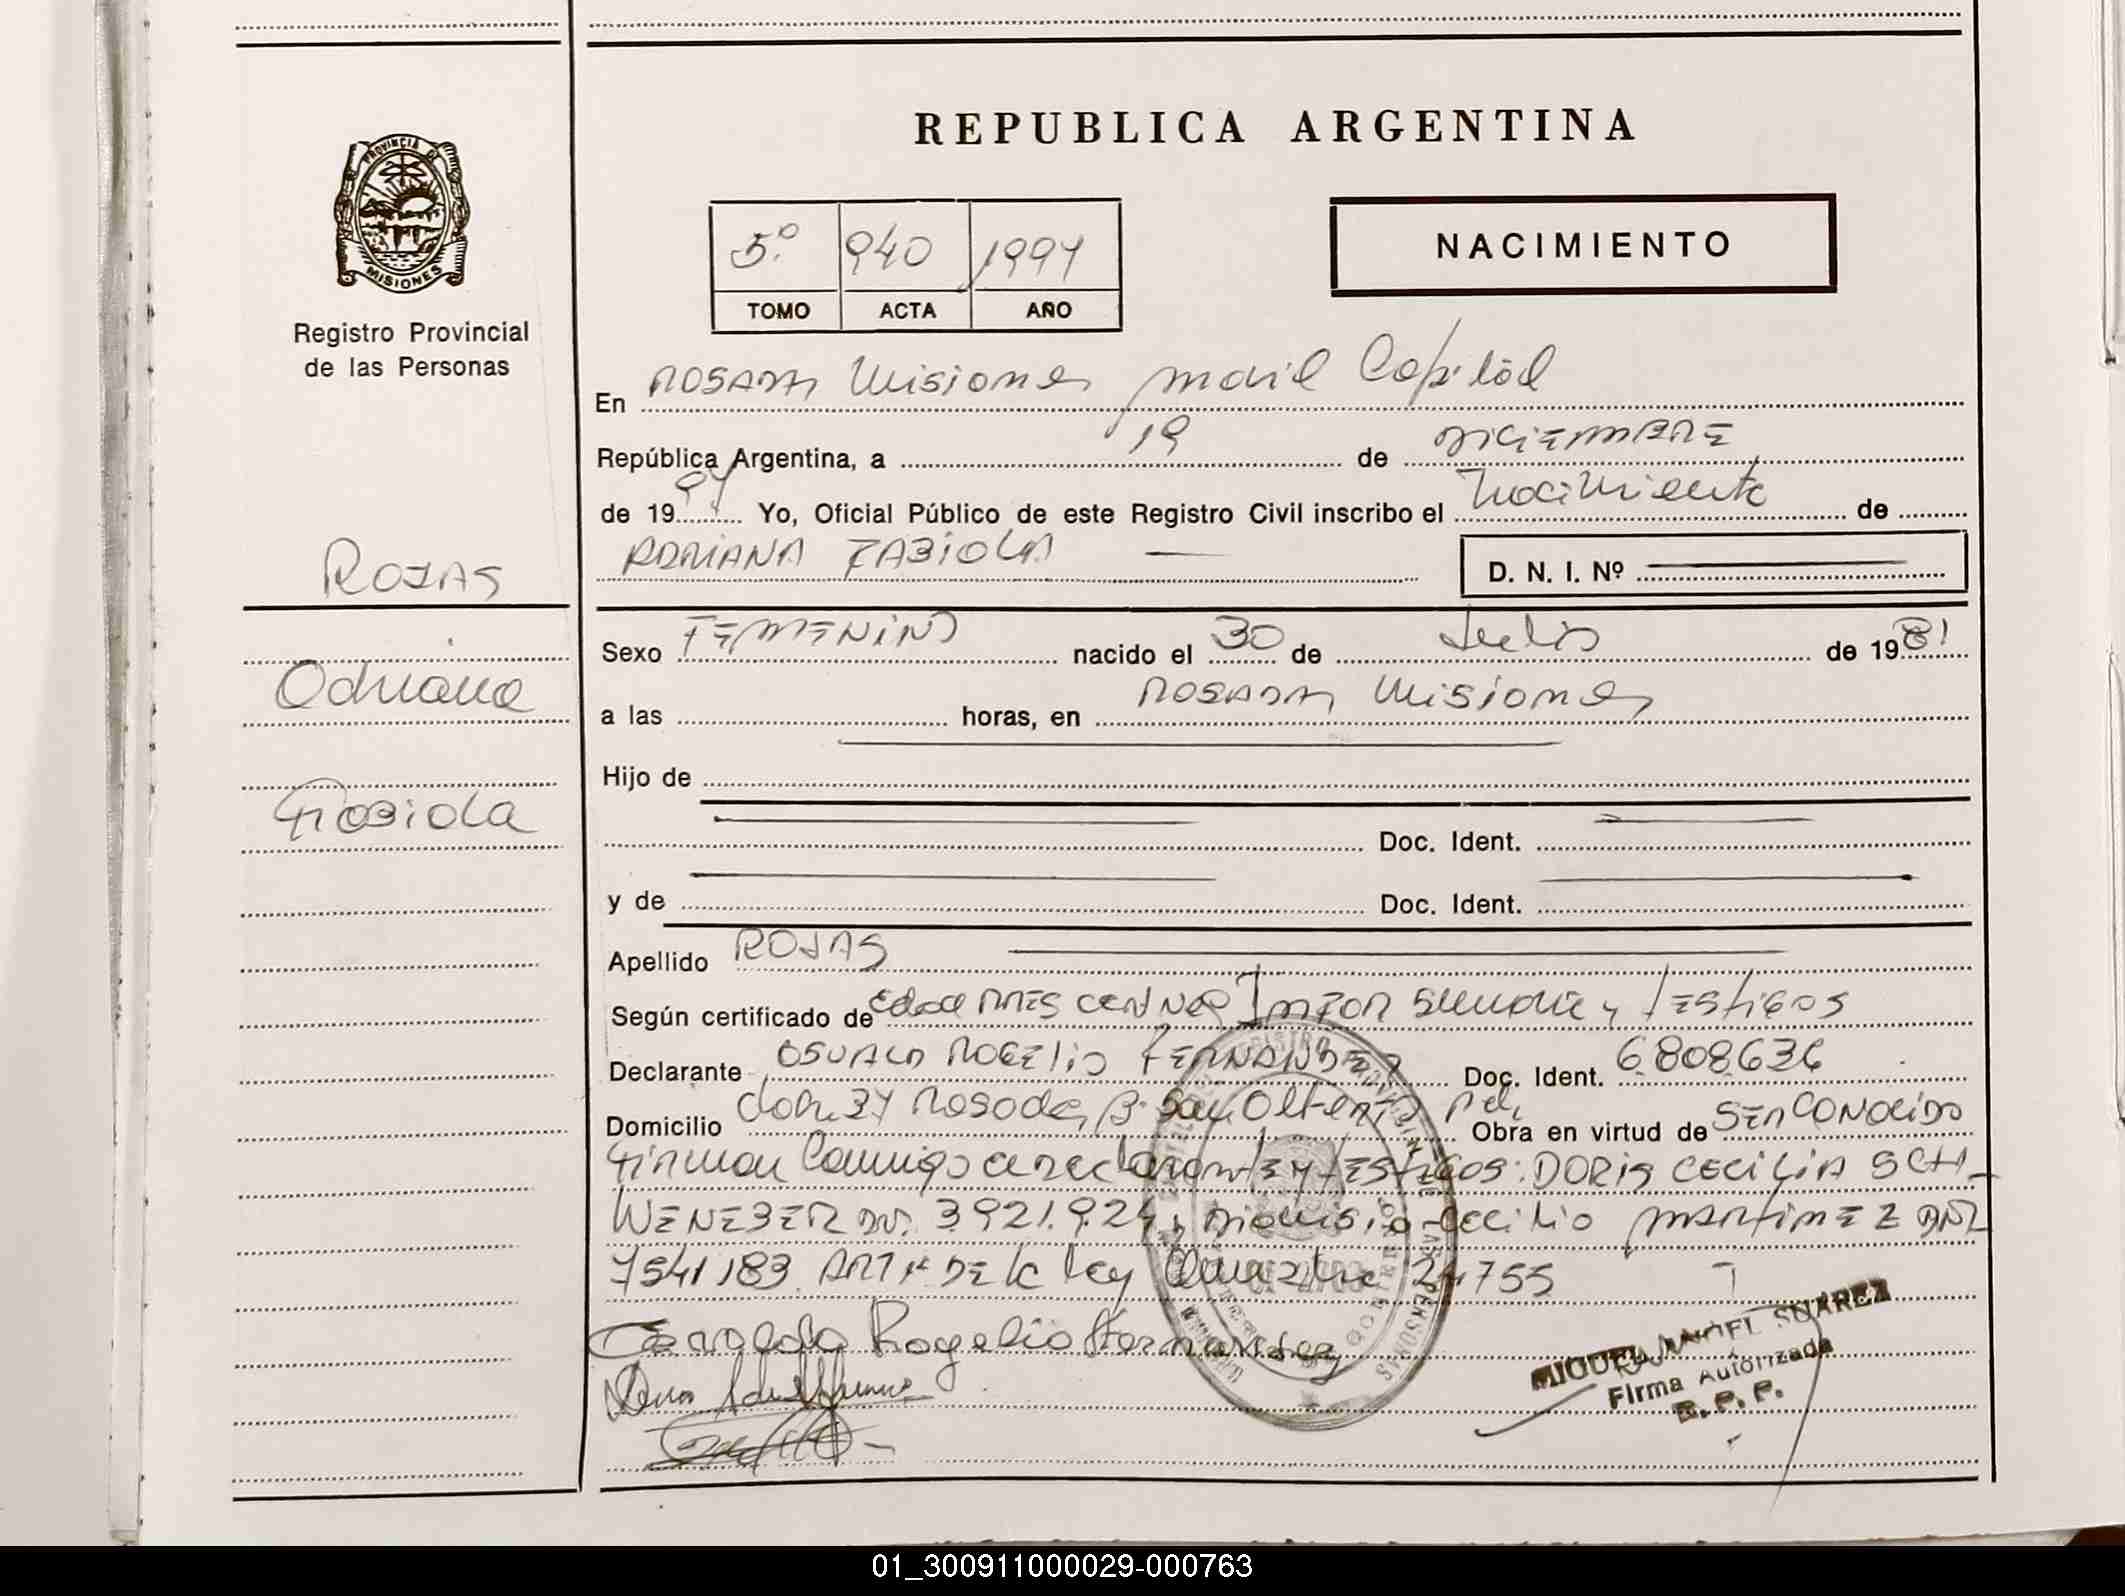 REPUBLICA ARGENTINA
PROVINCIA DE
MISIONES
Registro Provincial
de las Personas
5º 940 1997
TOMO ACTA AÑO
NACIMIENTO
En POSADAS Misiones movil Capital
República Argentina, a 19 de DICIEMBRE
de 1997 Yo, Oficial Público de este Registro Civil inscribo el Nacimiento de
ADRIANA FABIOLA
D. N. I. Nº
ROJAS
Adriana
Fabiola
Sexo FEMENINO nacido el 30 de Julio de 1981
a las horas, en POSADAS Misiones
Hijo de
Doc. Ident.
y de Doc. Ident.
Apellido ROJAS
Según certificado de Edad y Testigos
Declarante OSVALDO ROGELIO FERNANDEZ Doc. Ident. 6.808.636
Domicilio Posadas, Obra en virtud de SER CONOCIDO
Firman Conmigo declarante y TESTIGOS: DORIS CECILIA SCH
WENEBER DNI. 3.921.924, Dionisio Cecilio MARTINEZ DNI
7541183 ART DE la ley 24755
Rogelio Fernandez
MIGUEL ANGEL SUAREZ
Firma Autorizada
R. P. P.
01_300911000029-000763